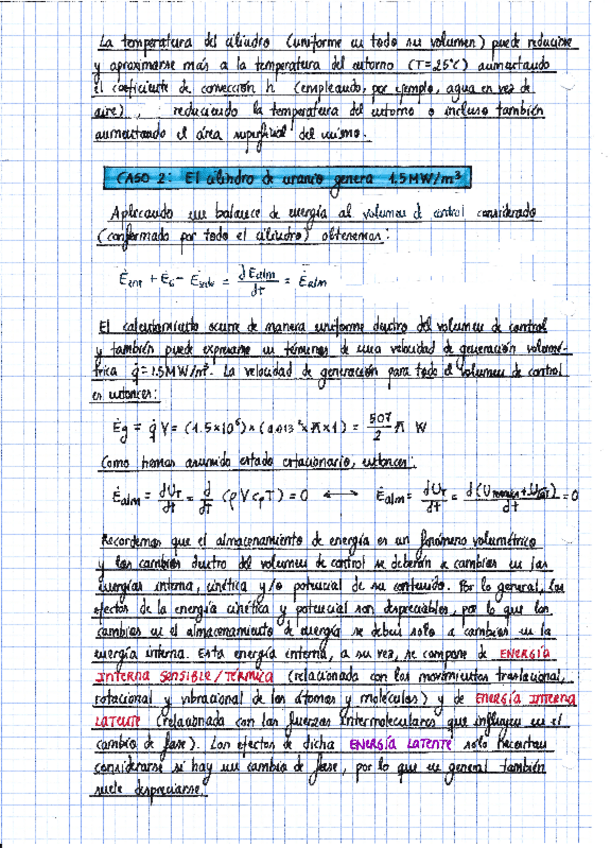 La temperatura del cilindro (uniforme en todo su volumen) puede reducirse
y aproximarse más a la temperatura del entorno (T=25°C) aumentando
el coeficiente de convección h (empleando, por ejemplo, agua en vez de
aire), reduciendo la temperatura del entorno o incluso también
aumentando el área superficial del mismo.
CASO 2: El cilindro de uranio genera 1.5MW/m³
Aplicando un balance de energía al volumen de control considerado
(conformado por todo el cilindro) obtenemos:
Ėent + Ėg - Ėsale = dEalm/dt = Ėalm
El calentamiento ocurre de manera uniforme dentro del volumen de control
y también puede expresarse en términos de una velocidad de generación volumé-
trica q̇ = 1.5MW/m³. La velocidad de generación para todo el volumen de control
es entonces:
Ėg = q̇ V = (1.5×10⁶)×(0.013²×π×1) = 507/2 π W
Como hemos asumido estado estacionario, entonces:
Ėalm = dUT/dt = d/dt (ρVcpT) = 0 ⟷ Ėalm = dUT/dt = d(Utérmica+Ulat)/dt = 0
Recordemos que el almacenamiento de energía es un fenómeno volumétrico
y los cambios dentro del volumen de control se deberán a cambios en las
energías interna, cinética y/o potencial de su contenido. Por lo general, los
efectos de la energía cinética y potencial son despreciables, por lo que los
cambios en el almacenamiento de energía se deben solo a cambios en la
energía interna. Esta energía interna, a su vez, se compone de ENERGÍA
INTERNA SENSIBLE/TÉRMICA (relacionada con los movimientos traslacional,
rotacional y vibracional de los átomos y moléculas) y de ENERGÍA INTERNA
LATENTE (relacionada con las fuerzas intermoleculares que influyen en el
cambio de fase). Los efectos de dicha ENERGÍA LATENTE solo necesitan
considerarse si hay un cambio de fase, por lo que en general también
suele despreciarse.